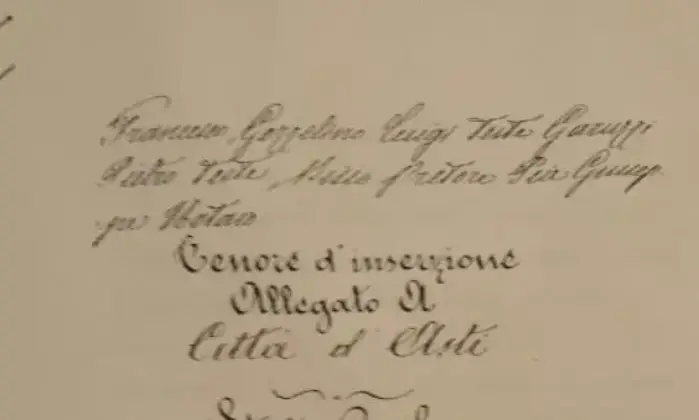 Francesco, Gozzelino Luigi Teste Garuzzi
Pietro Teste, Pretore Pia Giusep
pe Notaio
Tenore d'inserzione
Allegato A
Città d'Asti